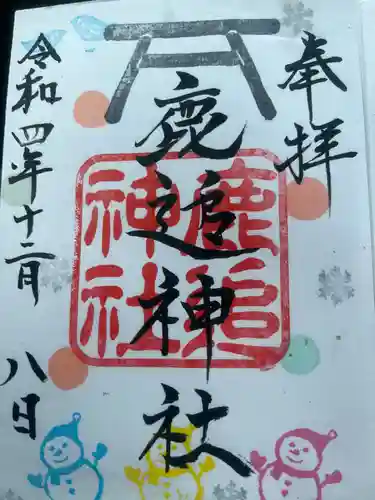 奉拝
鹿追神社
鹿追
神社
令和四年十二月
八日